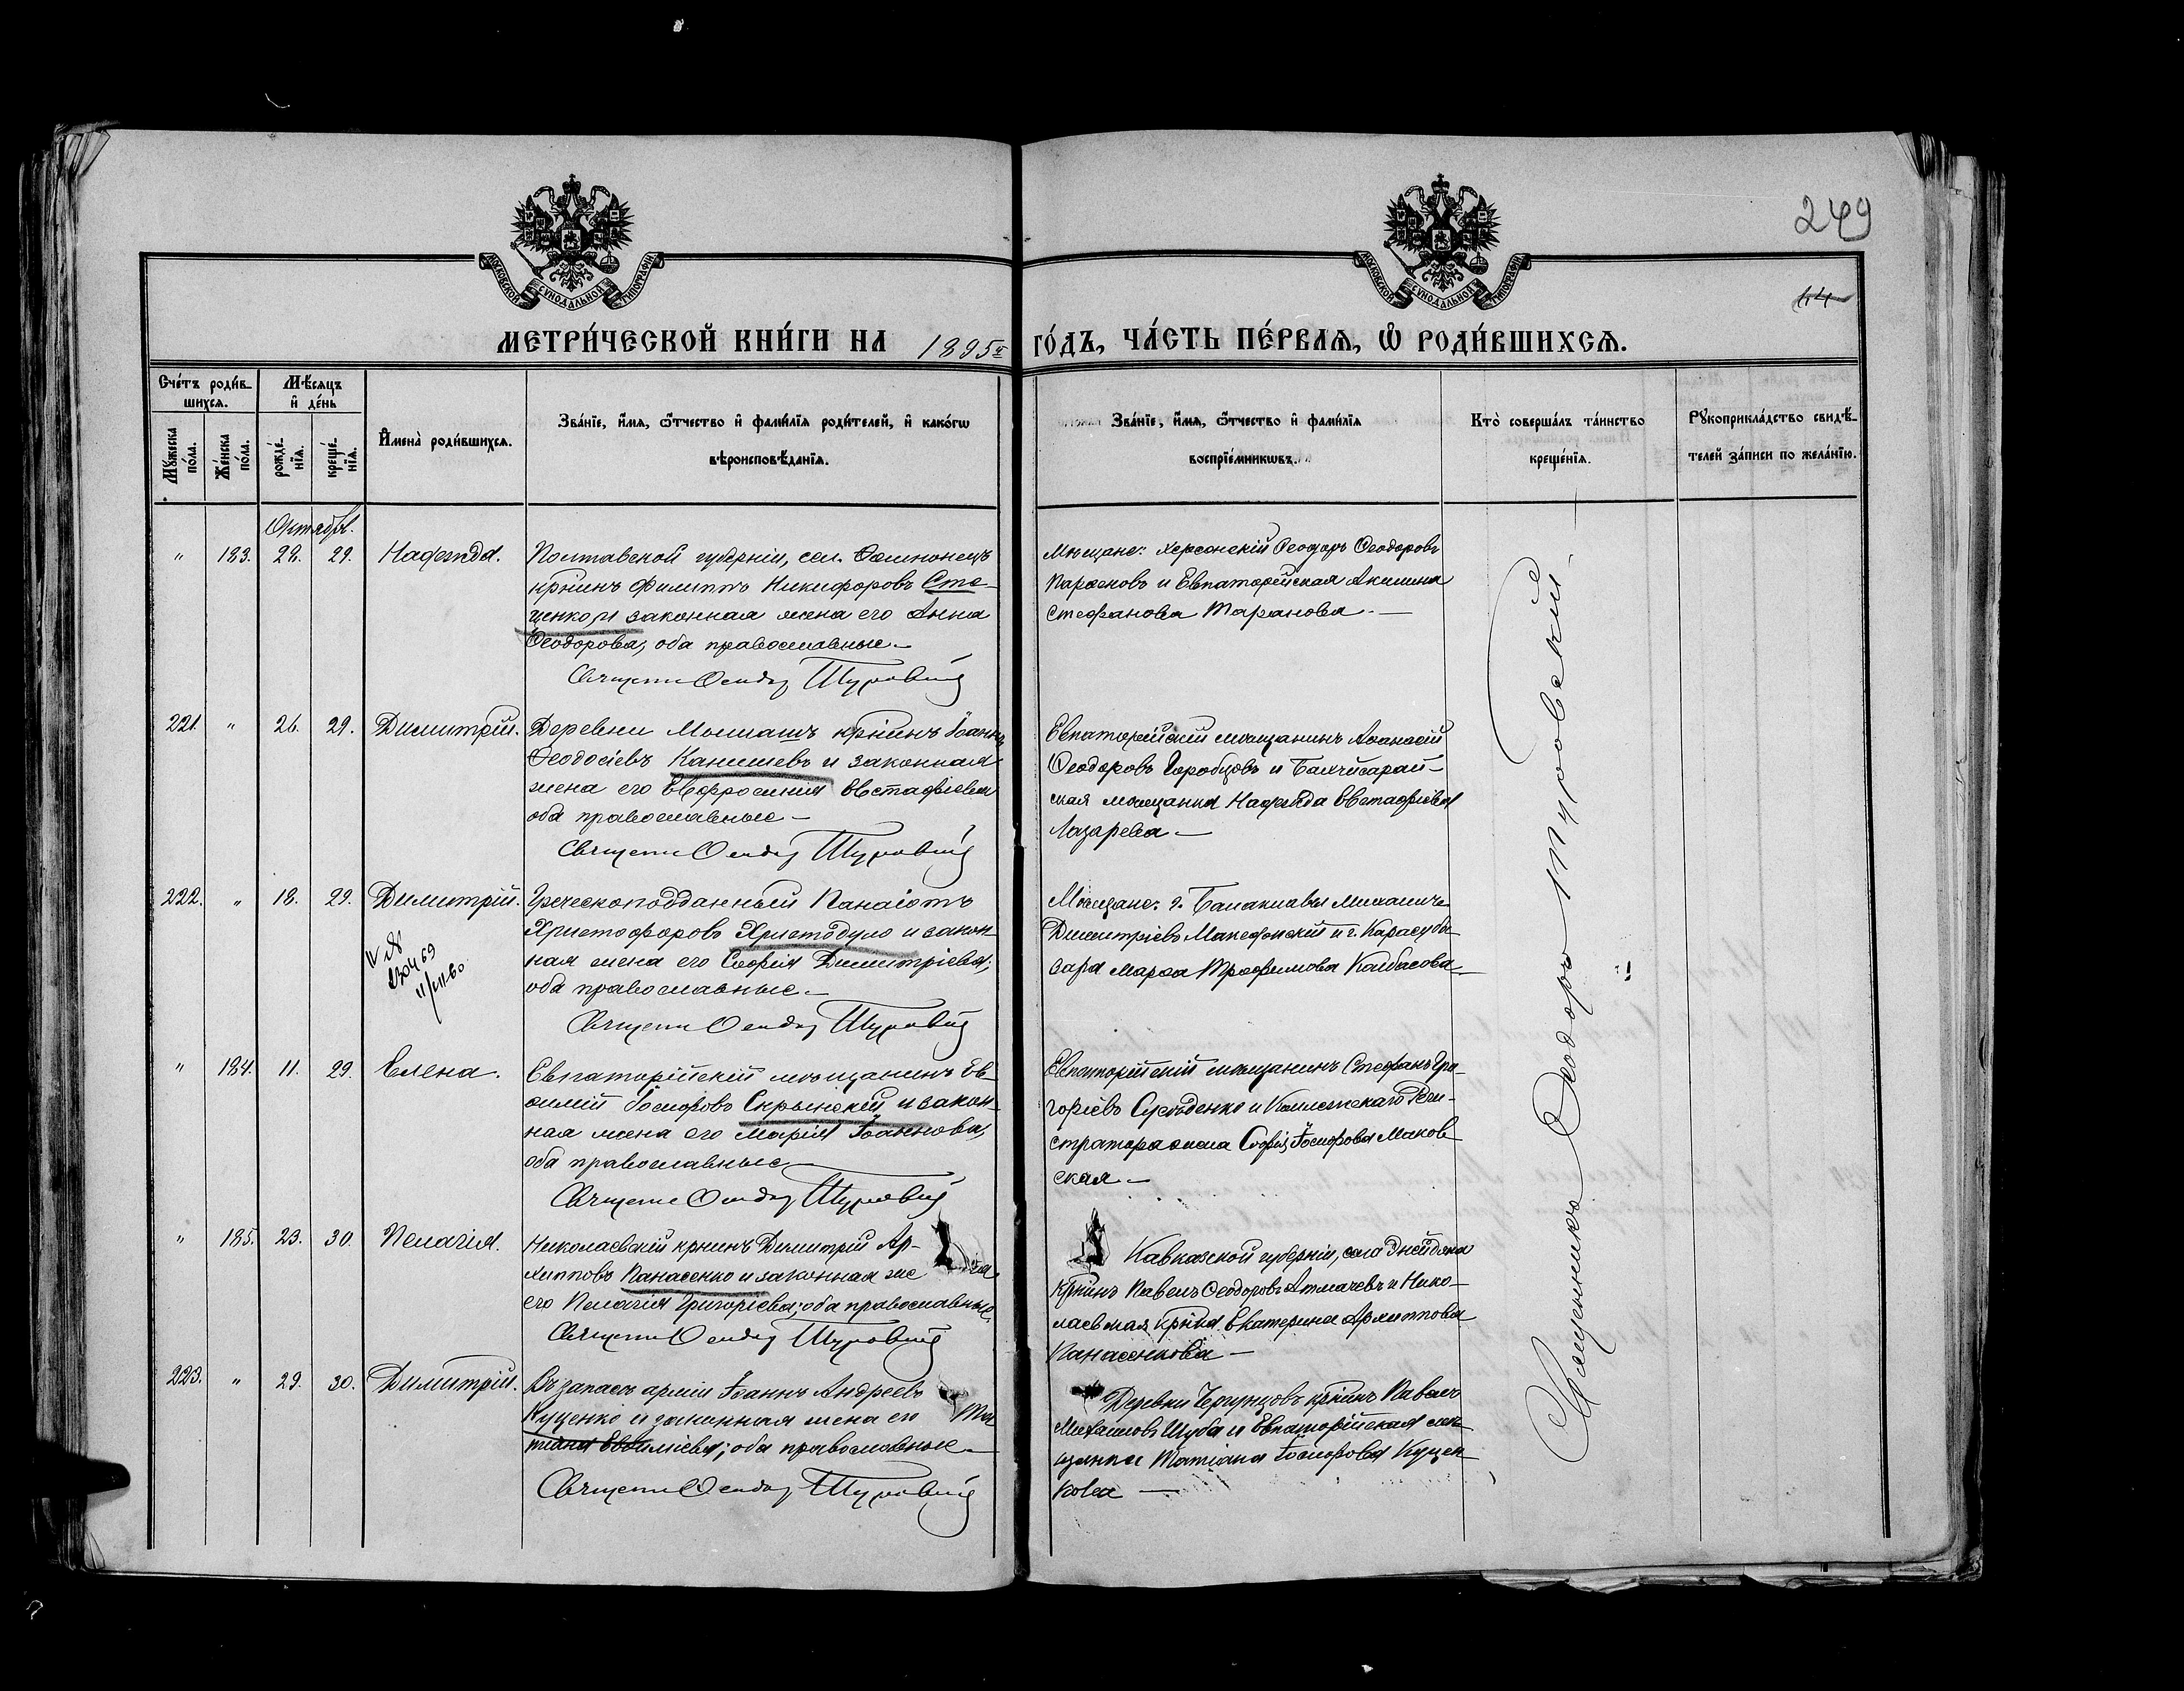 249
44
МОСКОВСКОЙ СѴНОДАЛЬНОЙ ТИПОГРАФІИ
МОСКОВСКОЙ СѴНОДАЛЬНОЙ ТИПОГРАФІИ
МЕТРИ́ЧЕСКОЙ КНИ́ГИ НА 1895 ГО́ДЪ, ЧА́СТЬ ПЕ́РВАѦ, Ѡ РОДИ́ВШИХСѦ.
Счетъ роди́в-
шихсѧ.
Мꙋжеска
по́ла.
Же́нска
по́ла.
Мѣ́сѧцъ
и҆ де́нь
рожде́-
нїѧ.
креще́-
нїѧ.
И҆мена̀ роди́вшихсѧ.
Зва́нїе, и҆́мѧ, ѻ҆́тчество и҆ фами́лїѧ роди́телей, и҆ како́гѡ
вѣроисповѣ́данїѧ.
Зва́нїе, и҆́мѧ, ѻ҆́тчество и҆ фами́лїѧ
воспрїе́мникѡвъ.
Кто̀ соверша́лъ та́инство
креще́нїѧ.
Рꙋкоприкла́дство свидѣ́-
телей за́писи по жела́нїю.
Октябрь.
" 183. 28. 29. Надежда.
Полтавской губерніи, сел.
кр̃нинъ Филиппъ Никифоровъ Сте-
ценко и законная жена его Анна
Ѳеодорова, оба православные.—
Священн Ѳеодор Туровскій
Мѣщане: Херсонскій Ѳеодоръ Ѳеодоровъ
Парѳеновъ и Евпаторійская Акилина
Стефанова Таранова.—
221. " 26. 29. Димитрій.
Деревни кр̃нинъ Іоаннъ
Ѳеодосіевъ Канишевъ и законная
жена его Евфросинія Евстафіева
оба православные —
Священн Ѳеодор Туровскій
Евпаторійскій мѣщанинъ Аѳанасій
Ѳеодоровъ Горобцовъ и Бахчисарай-
ская мѣщанка Надежда Евстафіева
Лазарева —
222. " 18. 29. Димитрій.
Греческоподданный Панаіотъ
Христофоровъ Христодуло и закон-
ная жена его Софія Димитріева;
оба православные.—
Священн Ѳеодор Туровскій
Мѣщане: г. Балаклавы Михаилъ
Димитріевъ Македонскій и г. Карасуба-
зара Марѳа Трофимова Калбасова
" 184. 11. 29. Елена.
Евпаторійскій мѣщанинъ Ев-
ѳимій Іосифовъ Скрынскій и закон-
ная жена его Марія Іоаннова,
оба православные —
Священн Ѳеодор Туровскій
Евпаторійскій мѣщанинъ Стефанъ Гри-
горіевъ и Коллежскаго Реги-
стратора жена Софія Іосифова Маков-
ская —
" 185. 23. 30. Пелагія.
Николаевскій кр̃нинъ Димитрій Ар-
хипповъ Панасенко и законная же на
его Пелагія Григоріева; оба православные.
Священн Ѳеодор Туровскій
Кавказской губерніи, села
кр̃нинъ Павелъ Ѳеодоровъ Атмачевъ и Нико-
лаевская кр̃нка Екатерина Архиппова
Панасенкова —
223. " 29. 30. Димитрій.
Въ запасѣ арміи Іоаннъ Андреевъ
Куценко и законная жена его Та
тіана Евѳиміева; оба православные —
Священн Ѳеодор Туровскій
Деревни кр̃нинъ Павелъ
Михайловъ Шуба и Евпаторійская мѣ-
щанка Татіана Іосифова Куцен-
кова —
Священникъ Ѳеодоръ Туровскій